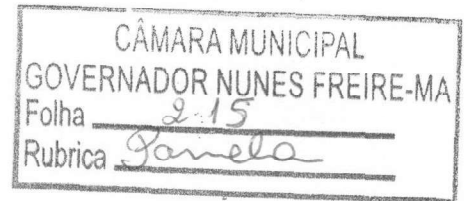 CÂMARA MUNICIPAL
GOVERNADOR NUNES FREIRE-MA
Folha 215
Rubrica